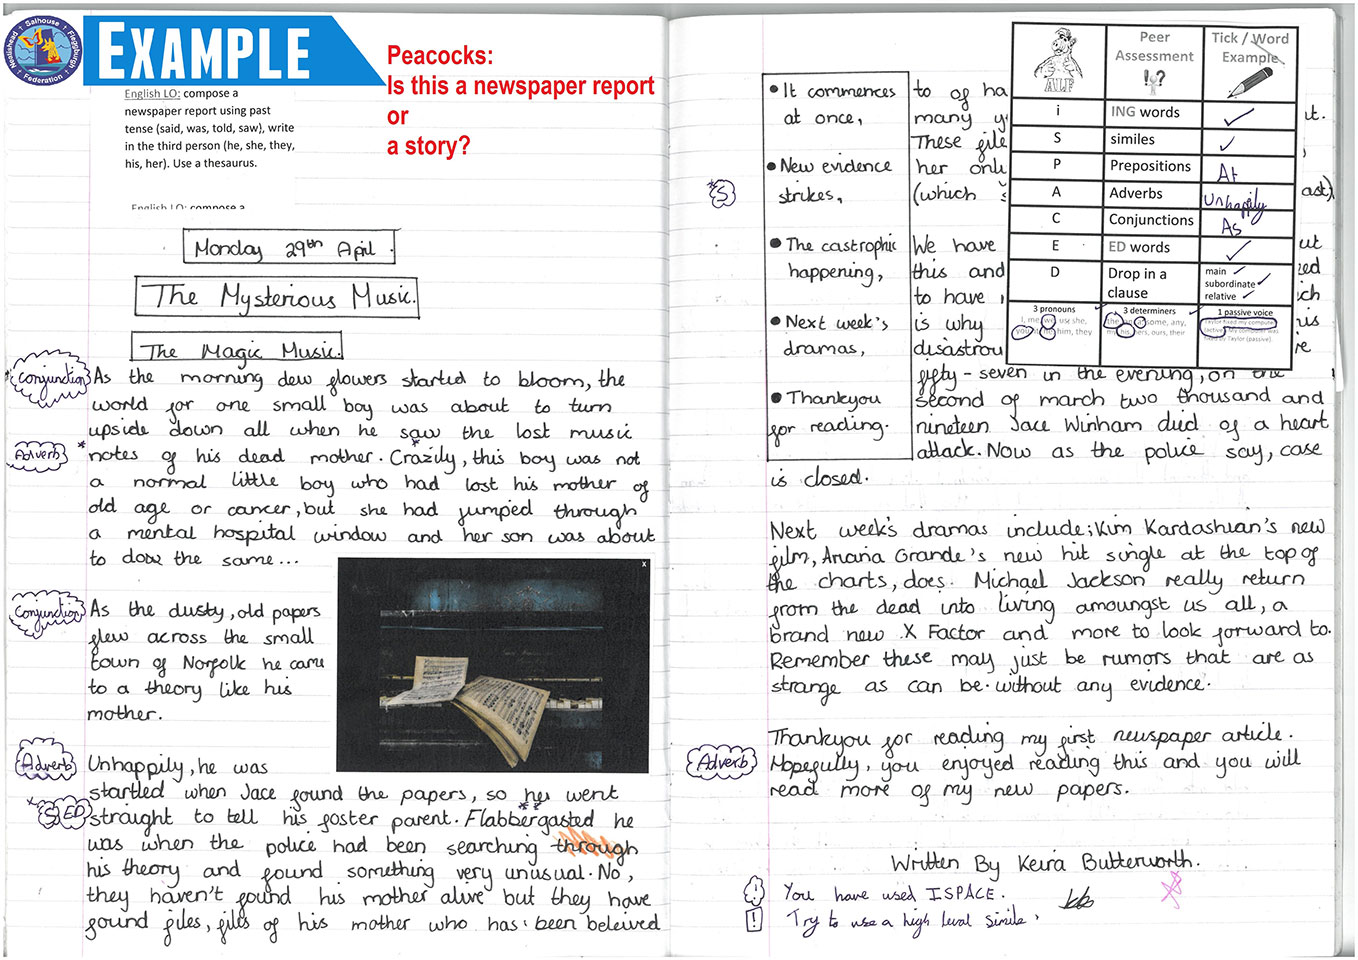 Nealishead Salhouse Fleggburgh
Federation
EXAMPLE
Peacocks:
Is this a newspaper report
or
a story?
English LO: compose a
newspaper report using past
tense (said, was, told, saw), write
in the third person (he, she, they,
his, her). Use a thesaurus.
English LO: compose a
Monday 29th April.
The Mysterious Music.
The Magic Music.
Conjunction
As the morning dew flowers started to bloom, the
world for one small boy was about to turn
upside down all when he saw the lost music
Adverb
notes of his dead mother. Crazily, this boy was not
a normal little boy who had lost his mother of
old age or cancer, but she had jumped through
a mental hospital window and her son was about
to dow the same...
Conjunction
As the dusty, old papers
flew across the small
town of Norfolk he came
to a theory like his
mother.
Adverb
Unhappily, he was
startled when Jace found the papers, so he went
S ED
straight to tell his foster parent. Flabbergasted he
was when the police had been searching through
his theory and found something very unusual. No,
they haven't found his mother alive but they have
found files, files of his mother who has been beleived
• It commences
at once,
• New evidence
strikes,
• The castrophic
happening,
• Next week's
dramas,
• Thankyou
for reading.
to of ha
many y
These file
her onl
S
(which
ast).
We have
ut
this and
ed
to have
ich
is why
his
disastrou
ve
fifty-seven in the evening, on the
second of march two thousand and
nineteen Jace Winham died of a heart
attack. Now as the police say, case
is closed.
ALF
Peer
Assessment
!?
Tick / Word
Example
i
ING words
✓
S
similes
✓
P
Prepositions
At
A
Adverbs
Unhappily
C
Conjunctions
As
E
ED words
✓
D
Drop in a
clause
main ✓
subordinate ✓
relative ✓
3 pronouns
3 determiners
1 passive voice
Next week's dramas include; Kim Kardashian's new
film, Ariana Grande's new hit single at the top of
the charts, does. Michael Jackson really return
from the dead into living amoungst us all, a
brand new X Factor and more to look forward to.
Remember these may just be rumors that are as
strange as can be. without any evidence.
Thankyou for reading my first newspaper article.
Adverb
Hopefully, you enjoyed reading this and you will
read more of my new papers.
Written By Keira Butterworth.
You have used ISPACE.
! Try to use a high level simile.